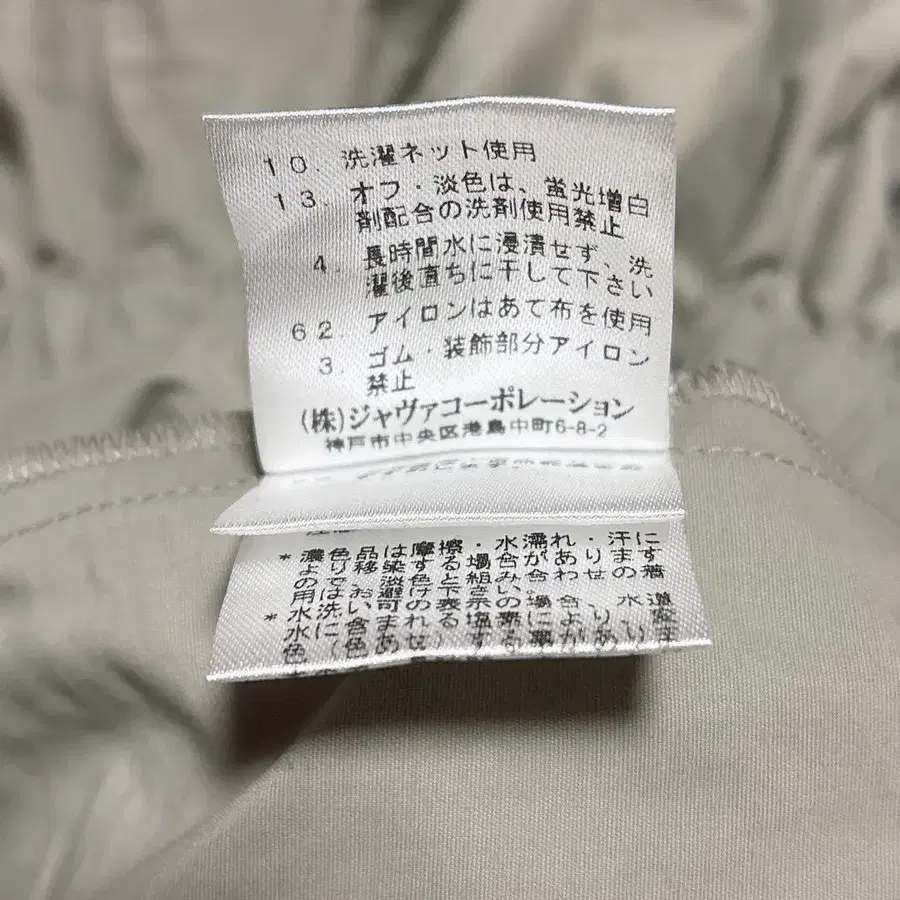 10. 洗濯ネット使用
13. オフ・淡色は、蛍光増白
剤配合の洗剤使用禁止
4. 長時間水に浸漬せず、洗
濯後直ちに干して下さい
62. アイロンはあて布を使用
3. ゴム・装飾部分アイロン
禁止
(株)ジャヴァコーポレーション
神戸市中央区港島中町6-8-2
*濃色品は摩擦・水濡れ・汗に
より移染する場合があります
ので、淡色と組み合わせの着
用はお避け下さい。
*水洗い可の表示の場合、水道
水に含まれる塩素により、変
色(色あせ)する事があります